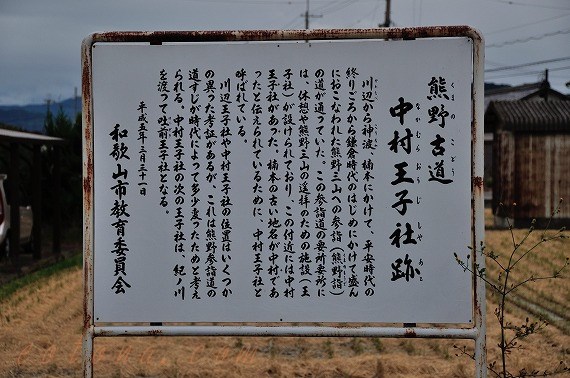 熊野古道
くまの こどう
中村王子社跡
なかむらおうじ しゃ あと
川辺から神波、楠本にかけて、平安時代の
終りごろから鎌倉時代のはじめにかけて盛ん
におこなわれた熊野三山への参詣(熊野詣)
の道が通っていた。この参詣道の要所要所に
は、休憩や熊野三山の遥拝のための施設(王
子社)が設けられており、この付近には中村
王子社があった。楠本の古い地名が中村であ
ったと伝えられているために、中村王子社と
呼ばれている。
川辺王子社や中村王子社の位置はいくつか
の異った考証があるが、これは熊野参詣道の
道すじが時代によって多少変ったためと考え
られる。中村王子社の次の王子社は、紀ノ川
を渡って吐前王子社となる。
平成五年三月三十一日
和歌山市教育委員会